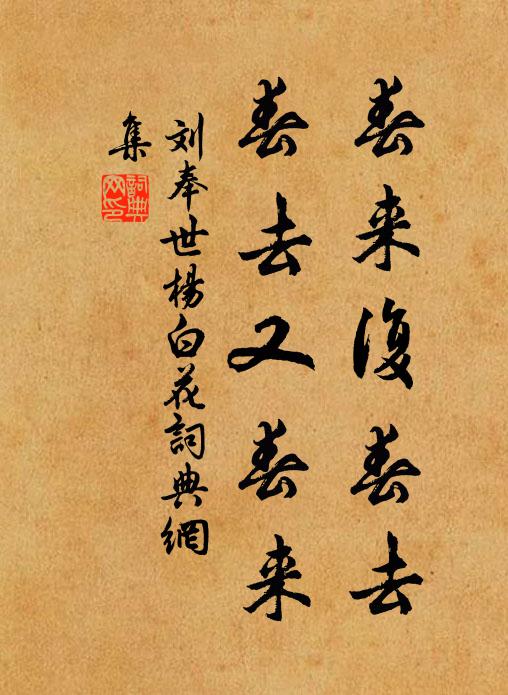 春来復春去
春去又春来
刘奉世楊白花詞典網
集
詞典
网印